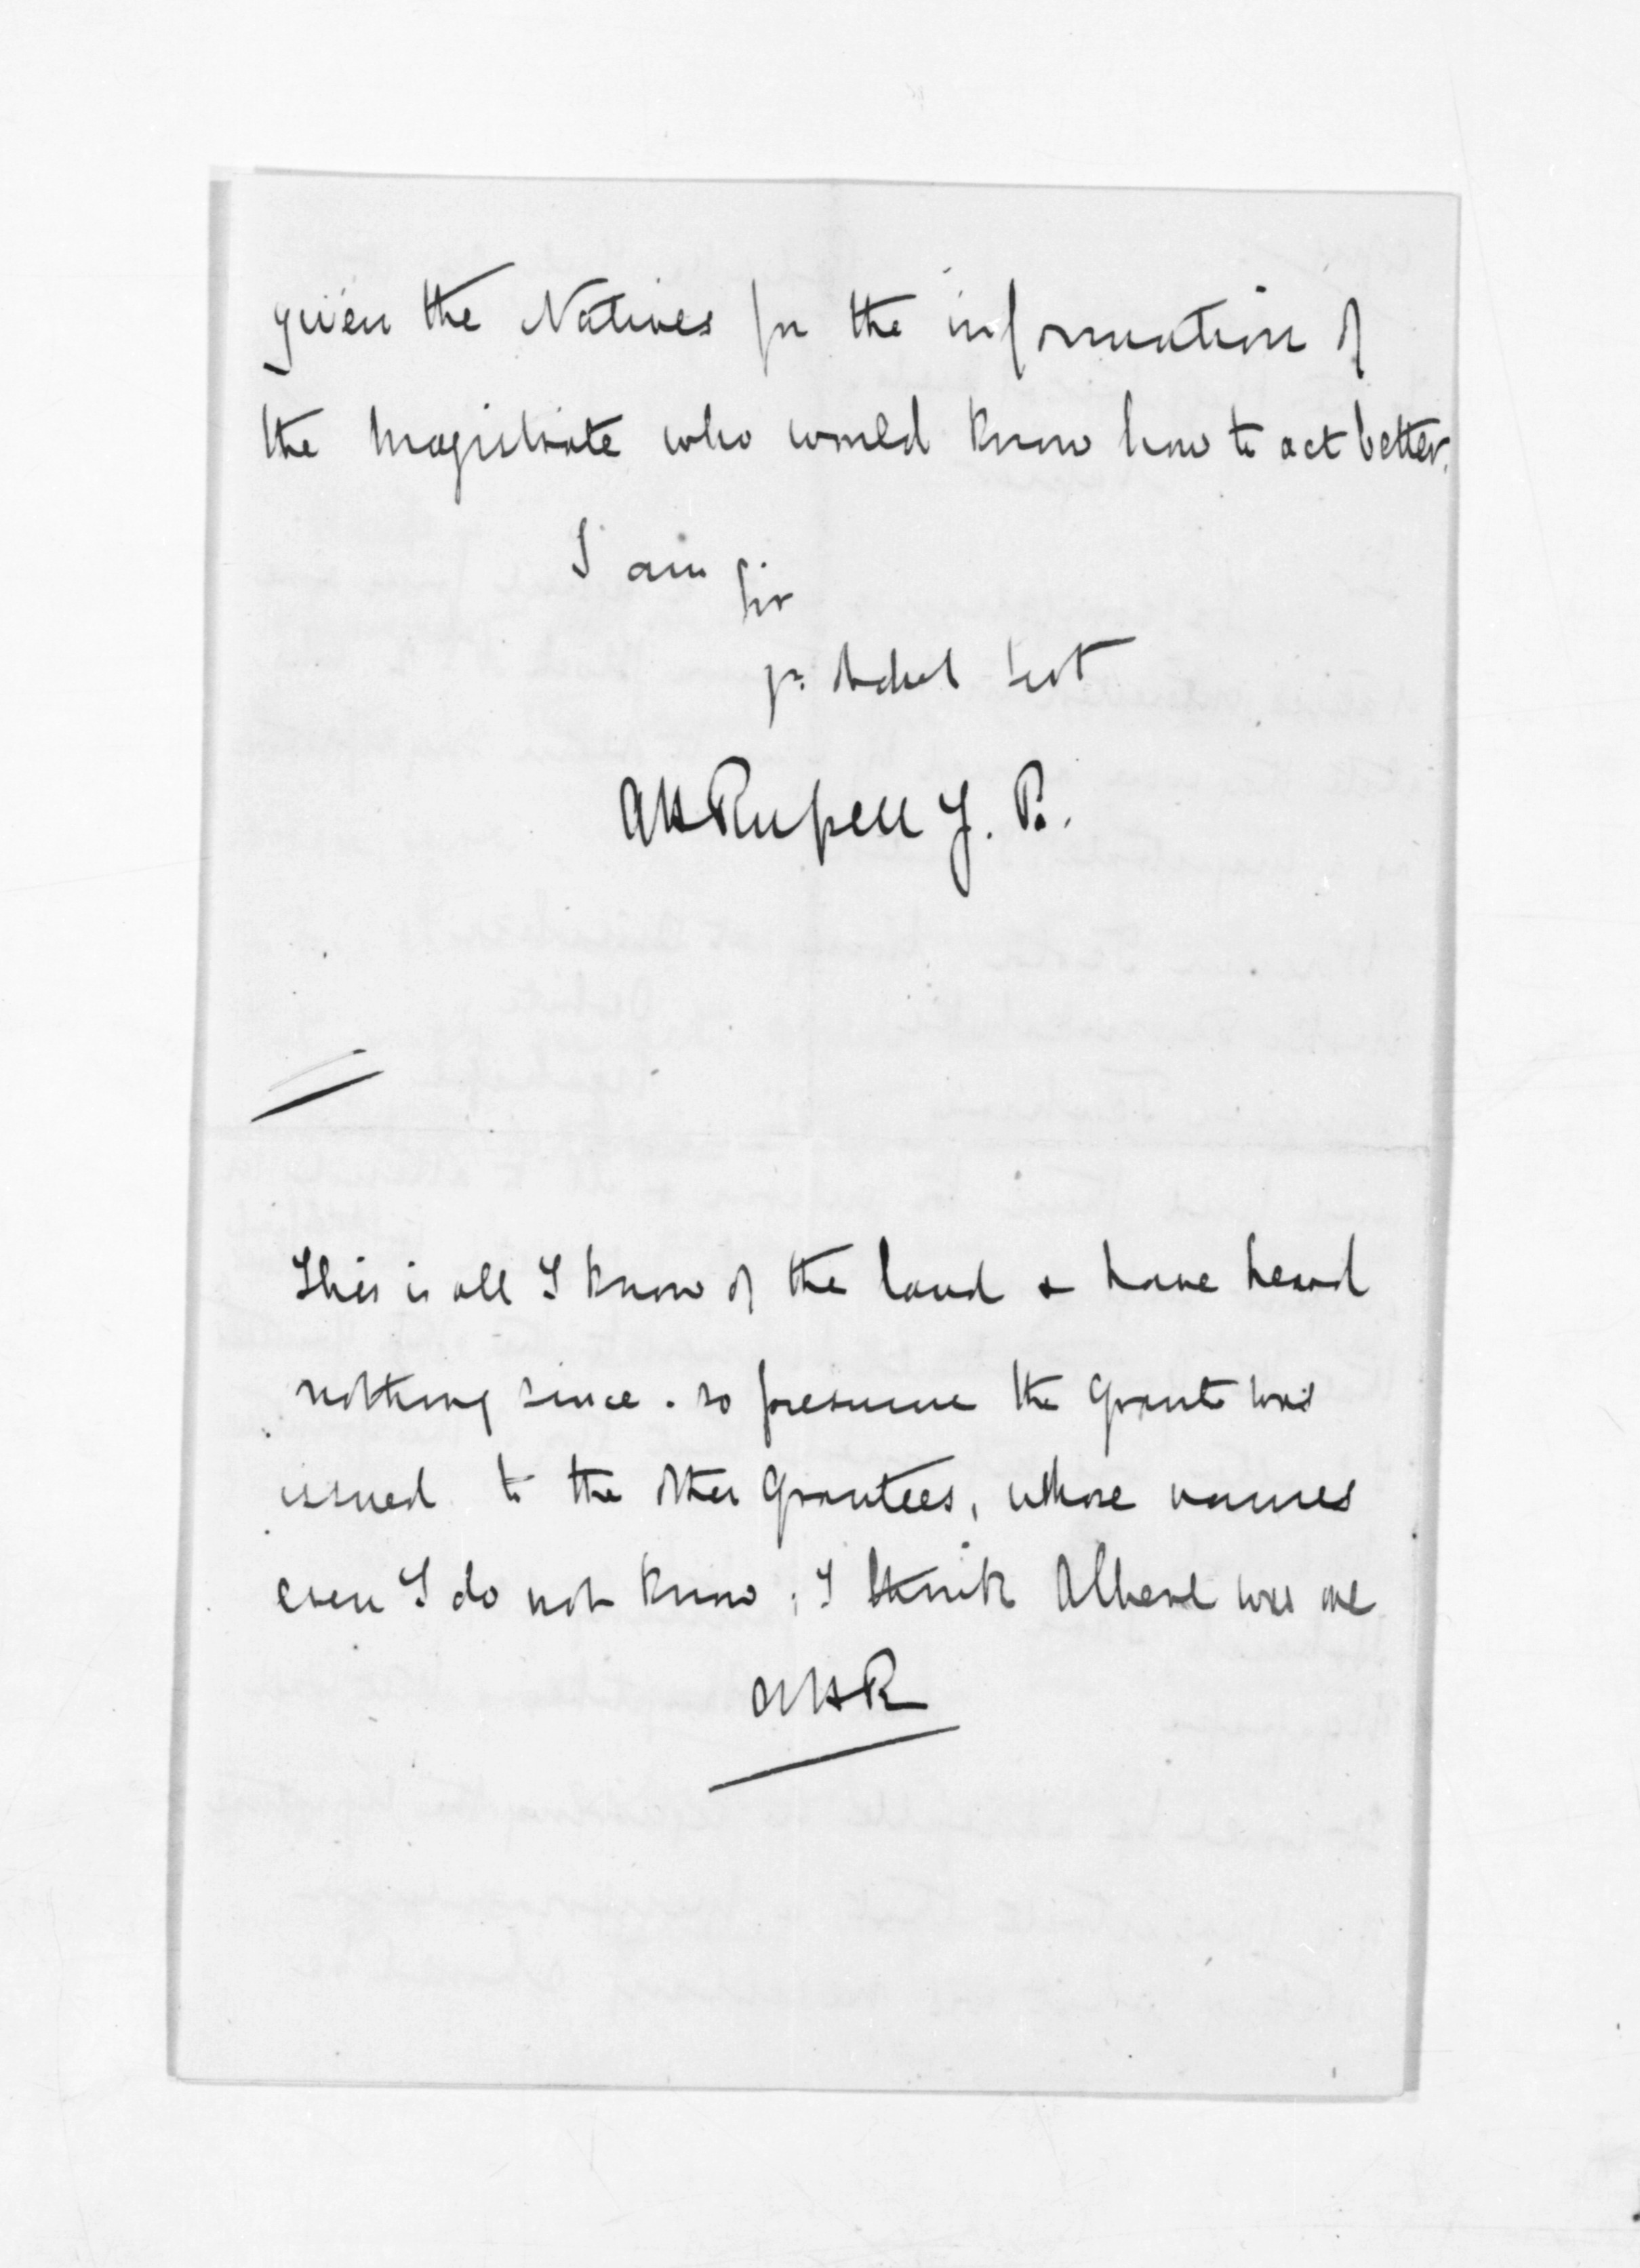 given the Natives for the information of
the Magistrate who would know how to act better.
I am
Sir
yr. Obdnt Svt
AHRussell J. P.
This is all I know of the land & have heard
nothing since. so presume the Grant was
issued to the other Grantees, whose names
even I do not know; I think was one
AHR